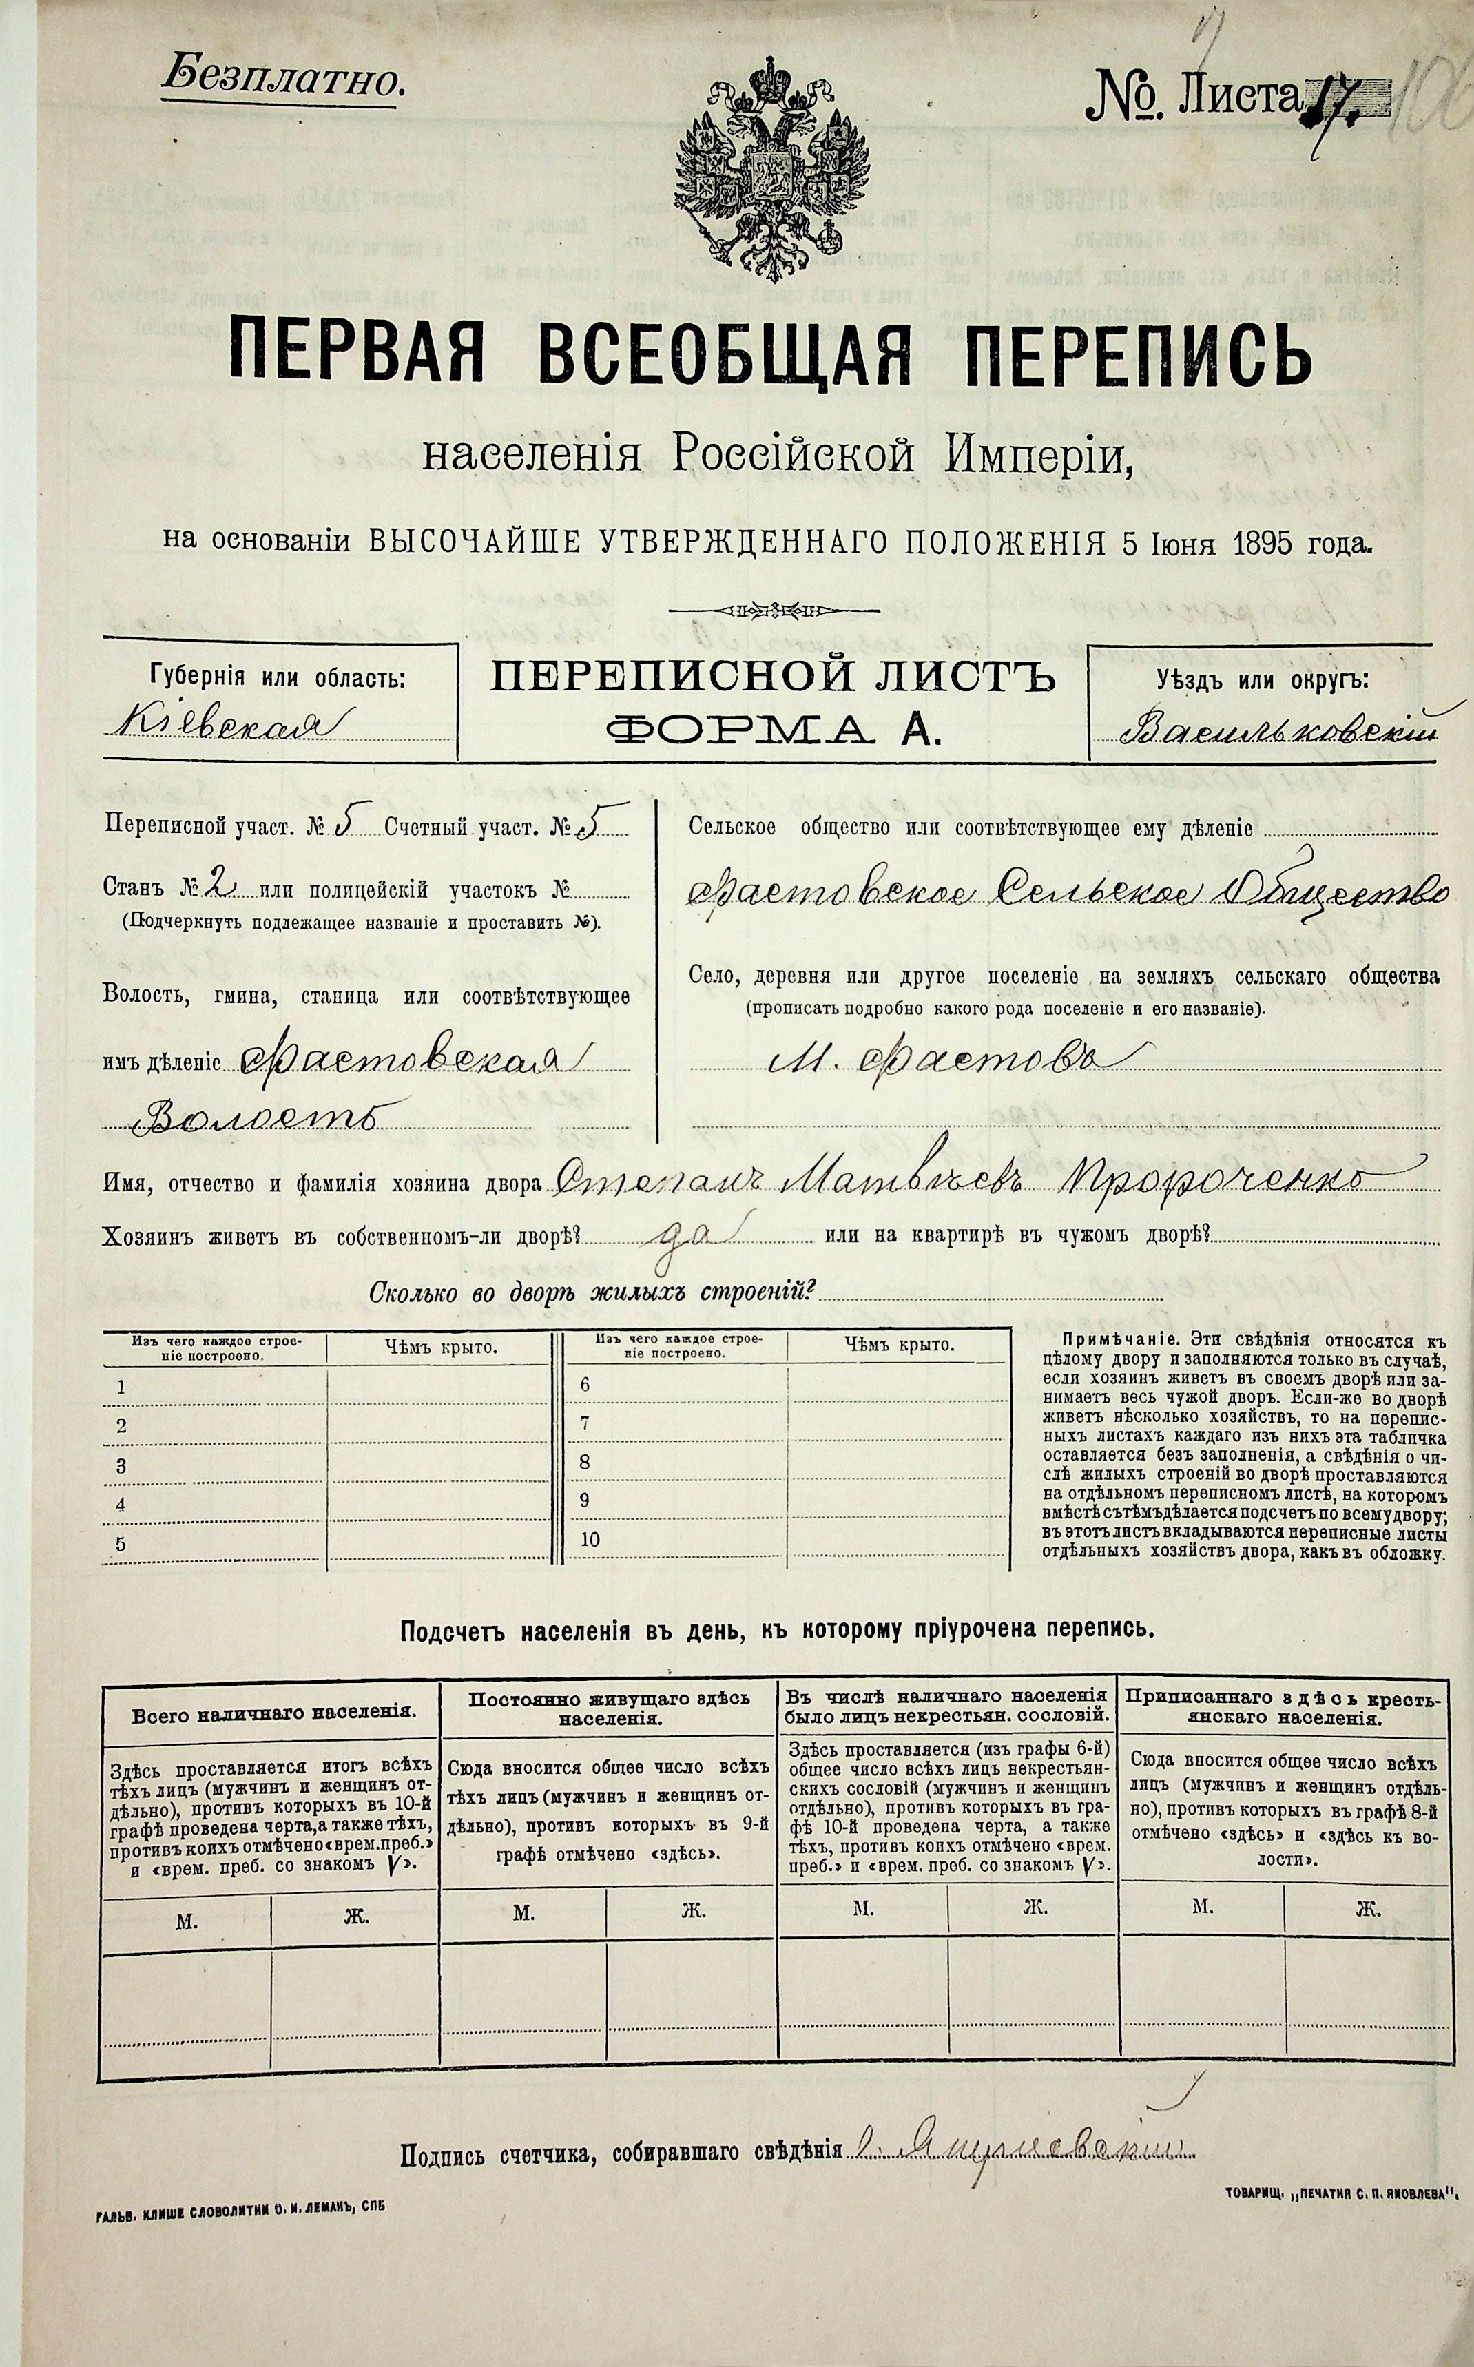 Безплатно.
№. Листа 17.
106
ПЕРВАЯ ВСЕОБЩАЯ ПЕРЕПИСЬ
населенія Россійской Имперіи,
на основаніи ВЫСОЧАЙШЕ УТВЕРЖДЕННАГО ПОЛОЖЕНІЯ 5 Іюня 1895 года.
Губернія или область:
Кіевская
ПЕРЕПИСНОЙ ЛИСТЪ
ФОРМА А.
Уѣздъ или округъ:
Васильковскій
Переписной участ. № 5 Счетный участ. № 5
Станъ № 2 или полицейскій участокъ №
(Подчеркнуть подлежащее названіе и проставить №).
Волость, гмина, станица или соотвѣтствующее
имъ дѣленіе Фастовская
Волость
Сельское общество или соотвѣтствующее ему дѣленіе
Фастовское Сельское Общество
Село, деревня или другое поселеніе на земляхъ сельскаго общества
(прописать подробно какого рода поселеніе и его названіе).
М. Фастовъ
Имя, отчество и фамилія хозяина двора Степанъ Матвѣевъ Пророченко
Хозяинъ живетъ въ собственномъ-ли дворѣ? да или на квартирѣ въ чужомъ дворѣ?
Сколько во дворѣ жилыхъ строеній?
Изъ чего каждое строе-
ніе построено.
Чѣмъ крыто.
1
2
3
4
5
Изъ чего каждое строе-
ніе построено.
Чѣмъ крыто.
6
7
8
9
10
Примѣчаніе. Эти свѣдѣнія относятся къ
цѣлому двору и заполняются только въ случаѣ,
если хозяинъ живетъ въ своемъ дворѣ или за-
нимаетъ весь чужой дворъ. Если-же во дворѣ
живетъ нѣсколько хозяйствъ, то на перепис-
ныхъ листахъ каждаго изъ нихъ эта табличка
оставляется безъ заполненія, а свѣдѣнія о чи-
слѣ жилыхъ строеній во дворѣ проставляются
на отдѣльномъ переписномъ листѣ, на которомъ
вмѣстѣ съ тѣмъ дѣлается подсчетъ по всему двору;
въ этотъ листъ вкладываются переписные листы
отдѣльныхъ хозяйствъ двора, какъ въ обложку.
Подсчетъ населенія въ день, къ которому пріурочена перепись.
Всего наличнаго населенія.
Здѣсь проставляется итогъ всѣхъ
тѣхъ лицъ (мужчинъ и женщинъ от-
дѣльно), противъ которыхъ въ 10-й
графѣ проведена черта, а также тѣхъ,
противъ коихъ отмѣчено «врем. преб.»
и «врем. преб. со знакомъ V».
М. Ж.
Постоянно живущаго здѣсь
населенія.
Сюда вносится общее число всѣхъ
тѣхъ лицъ (мужчинъ и женщинъ от-
дѣльно), противъ которыхъ въ 9-й
графѣ отмѣчено «здѣсь».
М. Ж.
Въ числѣ наличнаго населенія
было лицъ некрестьян. сословій.
Здѣсь проставляется (изъ графы 6-й)
общее число всѣхъ лицъ некрестьян-
скихъ сословій (мужчинъ и женщинъ
отдѣльно), противъ которыхъ въ гра-
фѣ 10-й проведена черта, а также
тѣхъ, противъ коихъ отмѣчено «врем.
преб.» и «врем. проб. со знакомъ V».
М. Ж.
Приписаннаго здѣсь кресть-
янскаго населенія.
Сюда вносится общее число всѣхъ
лицъ (мужчинъ и женщинъ отдѣль-
но), противъ которыхъ въ графѣ 8-й
отмѣчено «здѣсь» и «здѣсь къ во-
лости».
М. Ж.
Подпись счетчика, собиравшаго свѣдѣнія
ГАЛЬВ. КЛИШЕ СЛОВОЛИТНИ О. И. ЛЕМАНЪ, СПБ
ТОВАРИЩ. „ПЕЧАТНЯ С. П. ЯКОВЛЕВА".